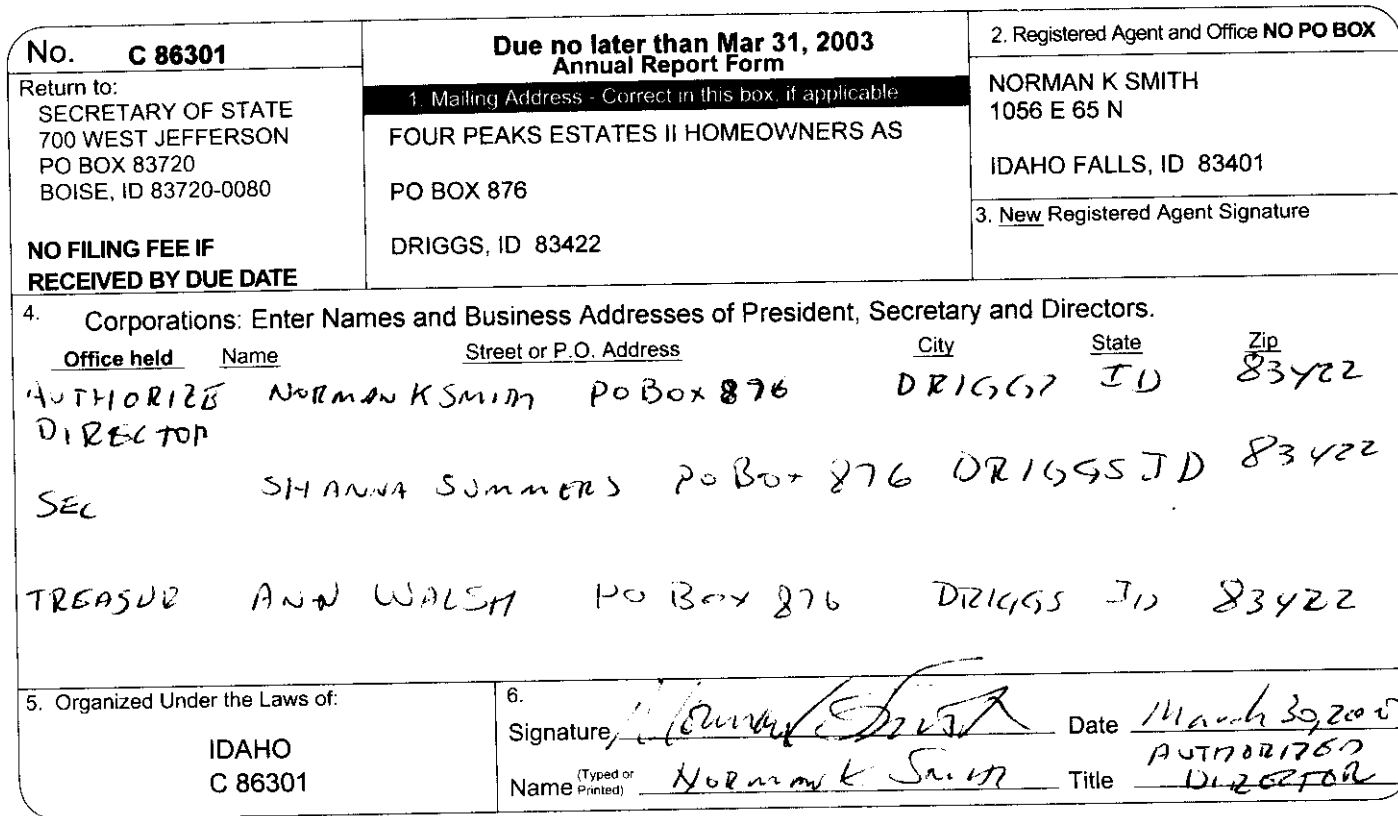 No. C 86301
Return to:
SECRETARY OF STATE
700 WEST JEFFERSON
PO BOX 83720
BOISE, ID 83720-0080
NO FILING FEE IF
RECEIVED BY DUE DATE
Due no later than Mar 31, 2003
Annual Report Form
1. Mailing Address - Correct in this box, if applicable
FOUR PEAKS ESTATES II HOMEOWNERS AS
PO BOX 876
DRIGGS, ID 83422
2. Registered Agent and Office NO PO BOX
NORMAN K SMITH
1056 E 65 N
IDAHO FALLS, ID 83401
3. New Registered Agent Signature
4. Corporations: Enter Names and Business Addresses of President, Secretary and Directors.
Office held Name Street or P.O. Address City State Zip
AUTHORIZE NORMAN K SMITH PO BOX 876 DRIGGS ID 83422
DIRECTOR
SEC SHANNA SUMMERS PO BOX 876 DRIGGS ID 83422
TREASUR ANN WALSH PO BOX 876 DRIGGS ID 83422
5. Organized Under the Laws of:
IDAHO
C 86301
6.
Signature Norman K Smith Date March 30,
Name (Typed or Printed) NORMAN K SMITH Title AUTHORIZED DIRECTOR